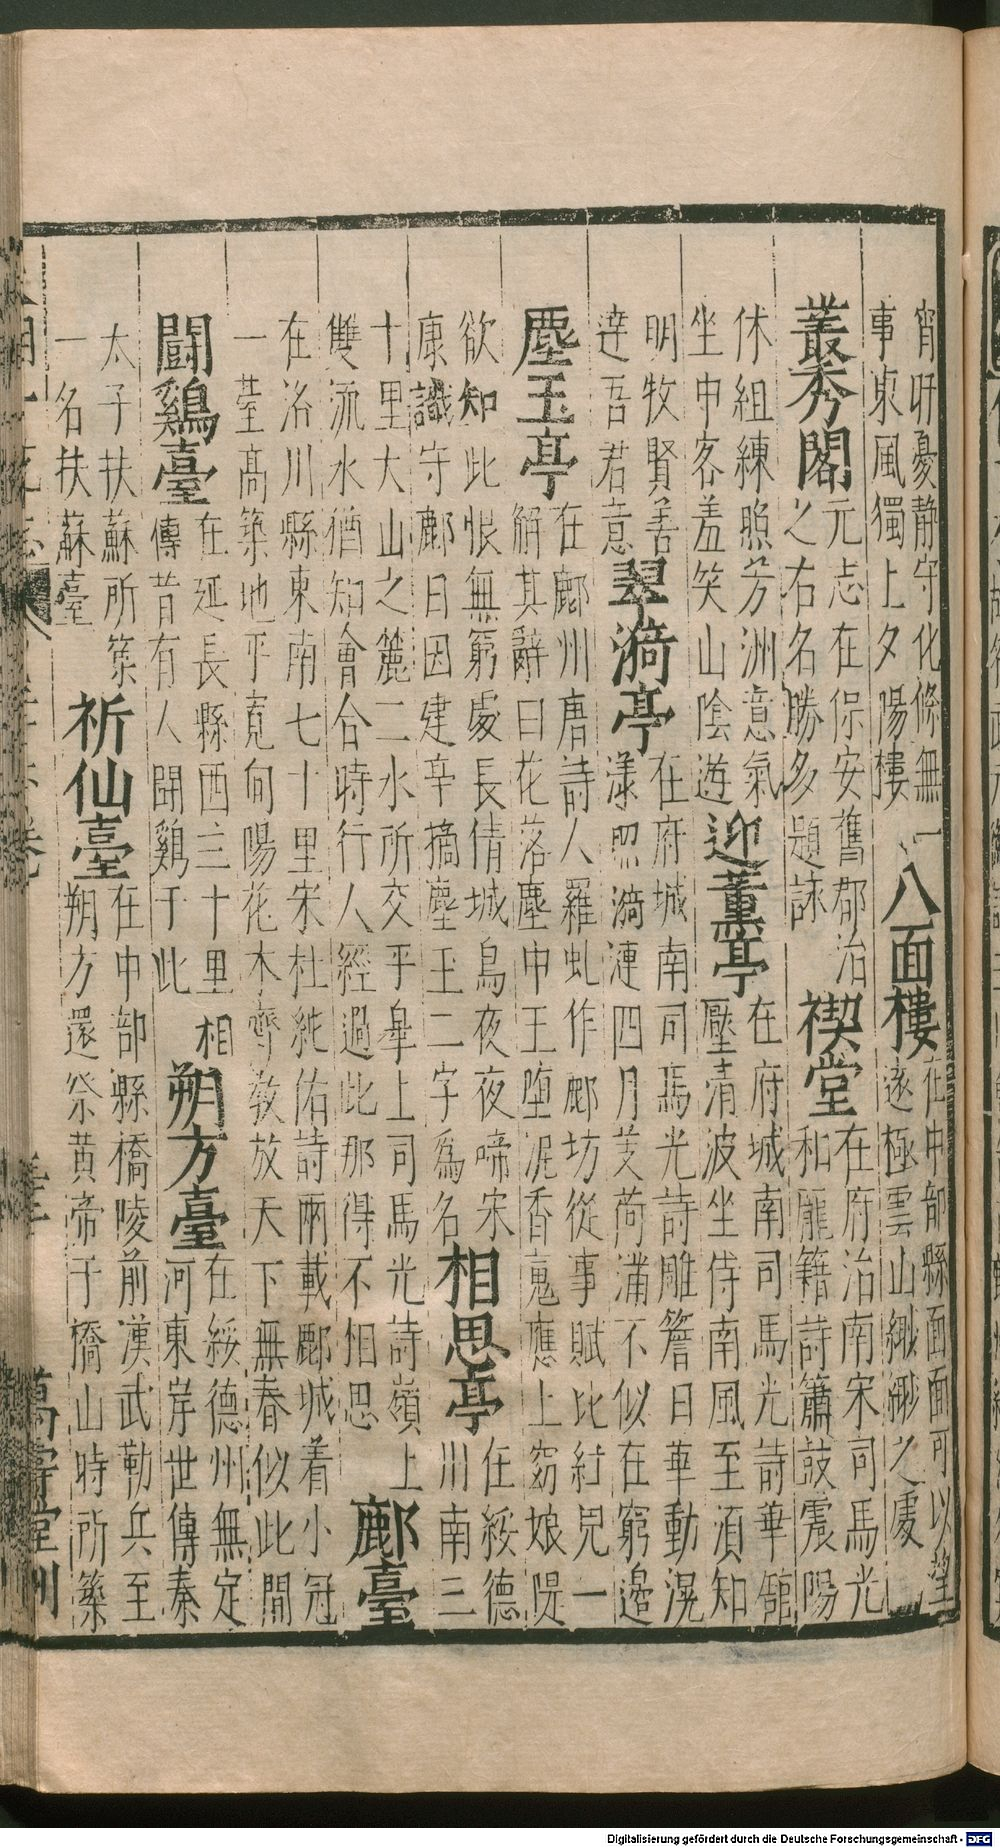 宵旰憂靜守化條無一
事東風獨上夕陽樓
八面樓
在中部縣面面可以望
遠極雲山緲緲之處
叢秀閣
元志在保安舊郡治
之右名勝多題詠
禊堂
在府治南宋司馬光
和龐籍詩簫鼓震陽
休組練照芳洲意氣
坐中客羞笑山陰遊
迎薰亭
在府城南司馬光詩華舘
壓清波坐待南風至須知
明牧賢善
達吾君意
翠漪亭
在府城南司馬光詩雕簷日華動滉
漾照漪漣四月芰荷滿不似在窮邊
塵玉亭
在鄜州唐詩人羅虬作鄜坊從事賦比紅兒一
解其辭曰花落塵中王墮泥香䰟應上窈娘隄
欲知此恨無窮處長倩城烏夜夜啼宋
康識守鄜日因建亭摘塵玉二字爲名
相思亭
在綏德
州南三
十里大山之麓二水所交平皋上司馬光詩嶺上
雙流水猶知會合時行人經過此那得不相思
鄜臺
在洛川縣東南七十里宋杜純佑詩兩載鄜城着小冠
一臺高築地平寬向陽花木齊敎放天下無春似此間
闘鷄臺
在延長縣西三十里相
傳昔有人闘鷄于此
朔方臺
在綏德州無定
河東岸世傳秦
太子扶蘇所築
一名扶蘇臺
祈仙臺
在中部縣橋陵前漢武勒兵至
朔方還祭黃帝于橋山時所築
萬壽堂刊
Digitalisierung gefördert durch die Deutsche Forschungsgemeinschaft - DFG